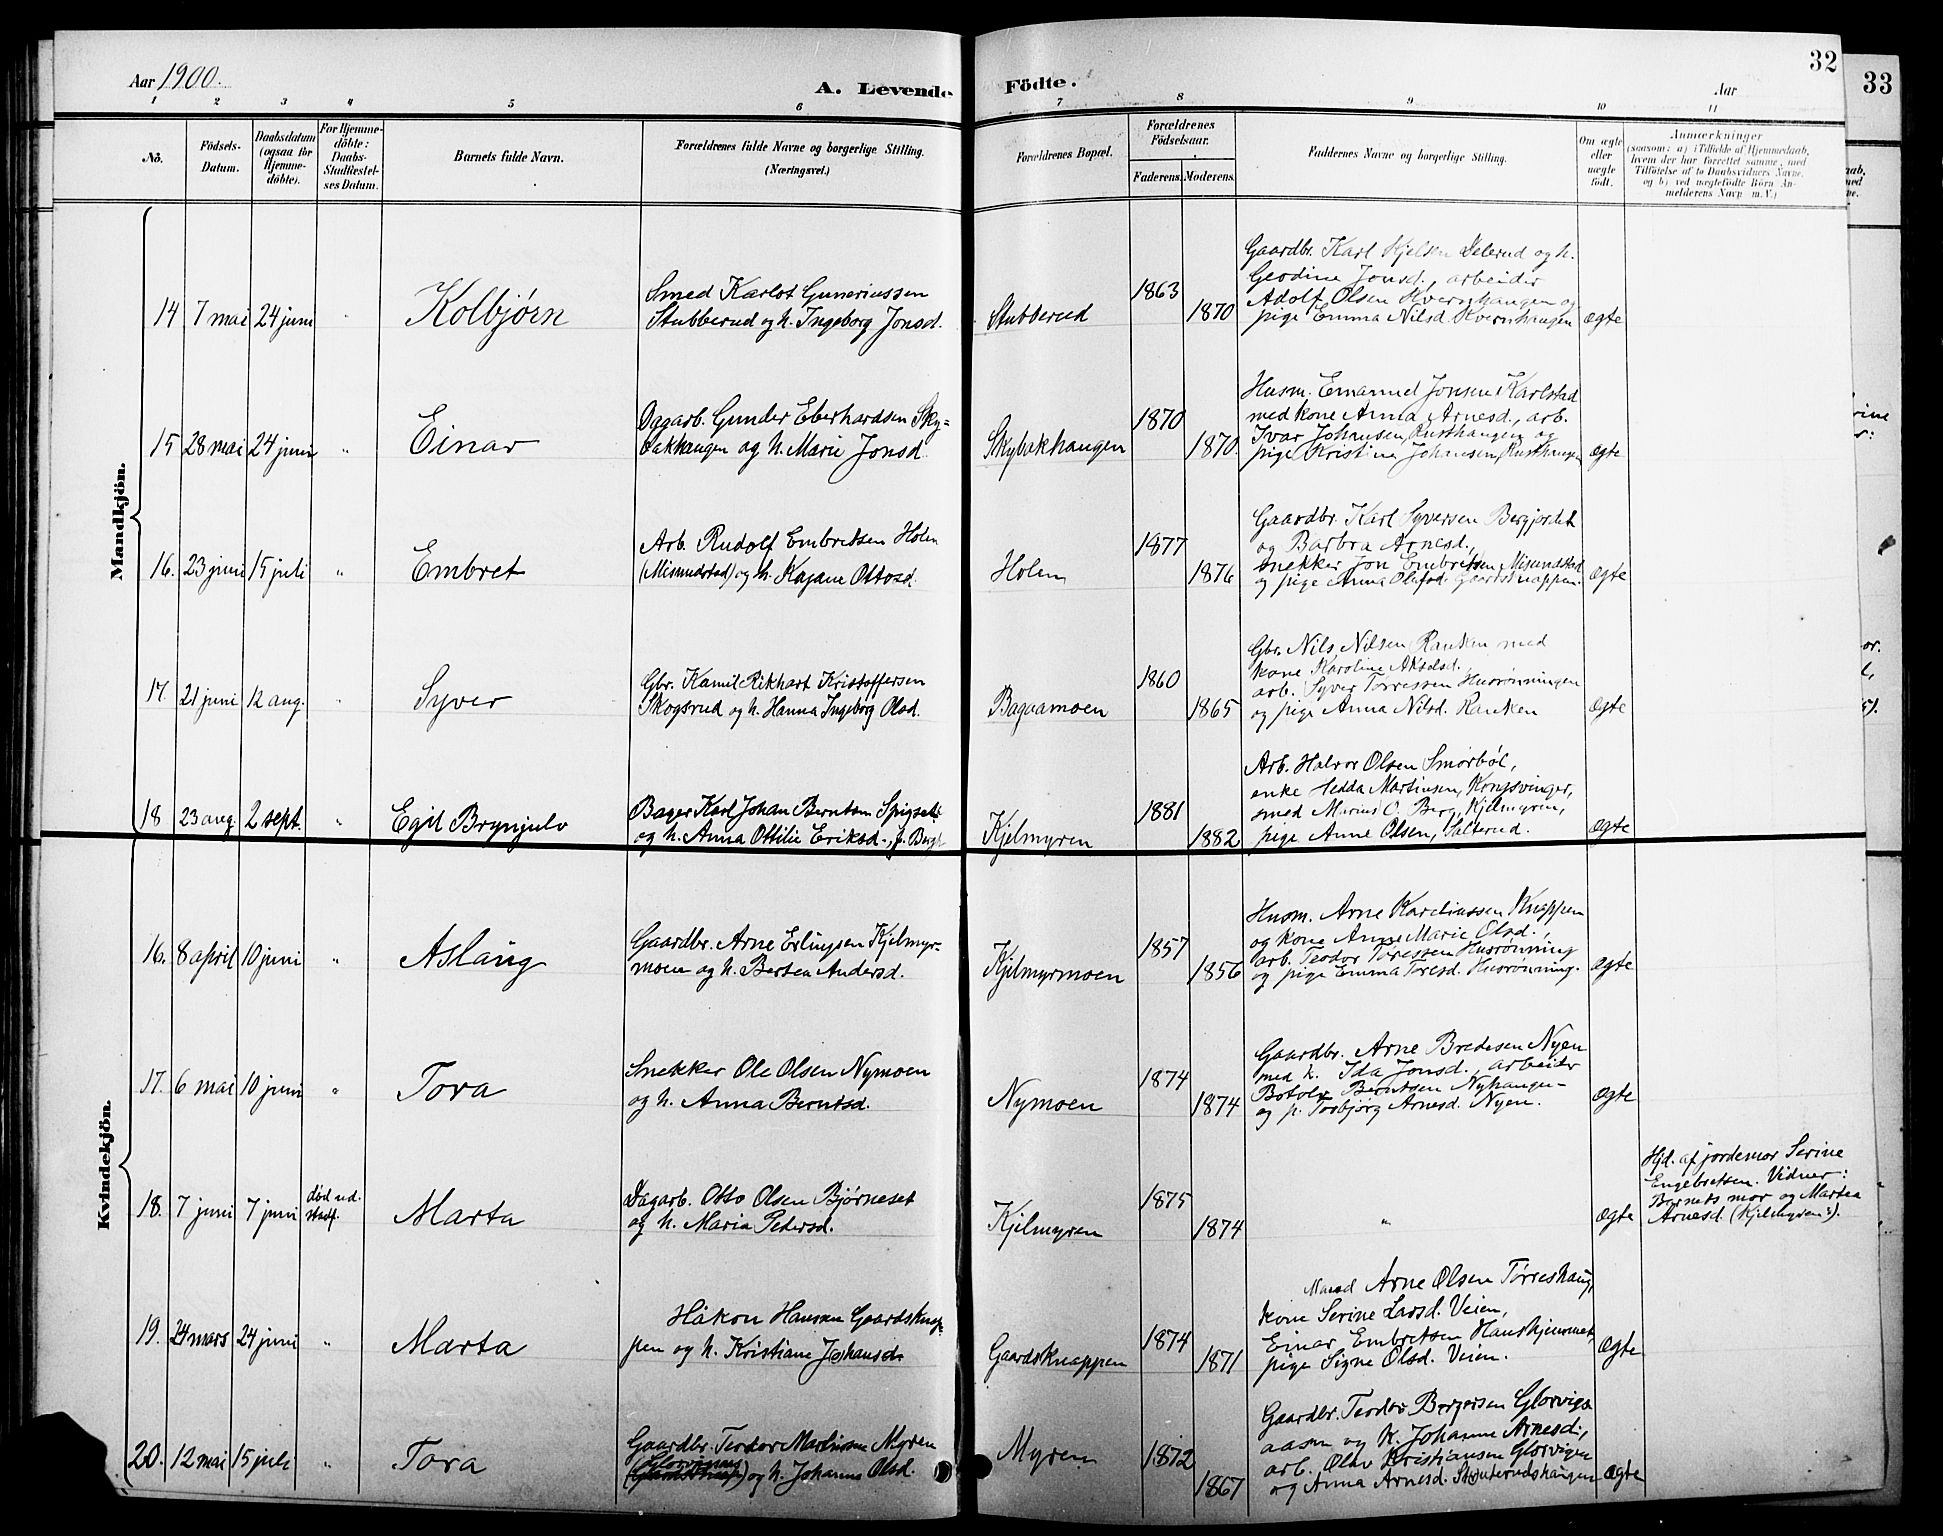 32
33
Aar 1900.
A. Levende Födte.
Aar
1 2 3 4 5 6 7 8 9 10 11
No.
Födsels-
Datum.
Daabsdatum
(ogsaa för
Hjemme-
döbte).
For Hjemme-
döbte:
Daabs-
Stadfæstel-
ses Datum.
Barnets fulde Navn.
Forældrenes fulde Navne og borgerlige Stilling.
(Næringsvei.)
Forældrenes Bopæl.
Forældrenes
Födselsaar.
Faderens. Moderens.
Faddernes Navne og borgerlige Stilling.
Om ægte
eller
uægte
født.
Anmærkninger
(saasom: a) i Tilfælde af Hjemmedaab,
hvem der har forrettet samme, med
Tilföielse af to Daabsvidners Navne,
og b) ved uegtefödte Börn An-
melderens Navn m. V.)
Mandkjön.
14 7 mai 24 juni " Kolbjørn
Smed Karlot Guneriussen
Stubberud og h. Ingeborg Jonsd.
Stubberud
1863
1870
Gaardbr. Karl Kjelsen Delerud og h.
Geodine Jonsd., arbeider
Adolf Olsen Kvernhaugen og
pige Emma Nilsd. Kvernhaugen
ægte
15 28 mai 24 juni " Einar
Dagarb. Gunder Eberhardsen Sky-
bakhaugen og h. Marie Jonsd.
Skybakhaugen
1870
1870.
Husm. Emanuel Jonsen Karlstad
med kone Anna Arnesd., arb.
Ivar Johansen, Rusthaugen og
pige Kristine Johansen, Rusthaugen
ægte
16. 23 juni 15 juli " Embret
Arb. Rudolf Embretsen Holen
(Misundstad) og h. Kajane Ottosd.
Holen
1877
1876
Gaardbr. Karl Syversen Bergjordet
og Barbra Arnesd.,
snekker Jon Embretsen Misundstad
og pige Anna Olsd. Gaardsknappen.
ægte
17. 21 juni 12 aug. " Syver
Gbr. Kamil Rikhart Kristoffersen
Skogsrud og h. Hanna Ingeborg Olsd.
Bagaamoen
1860
1865
Gbr. Nils Nilsen Ranken med
kone Karoline Akselsd.,
arb. Syver Tørressen Husrønningen
og pige Anna Nilsd. Ranken
ægte
18 23 aug. 2 sept. " Egil Brynjulv
Bager Karl Johan Berntsen Spigset
og h. Anna Ottilie Eriksd., f. Bergh
Kjelmyren
1881
1882
Arb. Halvor Olsen Smørbøl,
enke Hedda Martinsen, Kongsvinger,
smed Marius O. Berg, Kjelmyren,
pige Anne Olsen, Salterud.
ægte
Kvindekjön.
16. 8 april 10 juni " Aslaug
Gaardbr. Arne Erlingsen Kjelmyr-
moen og h. Bertea Andersd.
Kjelmyrmoen
1857
1856
Husm. Arne Kareliussen Knappen
og kone Anne Marie Olsd.,
arb. Teodor Tøressen Husrønning
og pige Emma Toresd. Husrønning.
ægte
17. 6 mai 10 juni " Tora
Snekker Ole Olsen Nymoen
og h. Anna Berntsd.
Nymoen
1874
1874
Gaardbr. Arne Bredesen Nyen
med h. Ida Jonsd., arbeider
Botolv Berntsen Nyhaugen
og p. Torbjørg Arnesd. Nyen.
ægte
18. 7 juni 7 juni død ud.
stadf. Marta
Dagarb. Otto Olsen Bjørneset
og h. Maria Pedersd.
Kjelmyren
1875
1874
"
ægte
Hjd. af jordemor Serine
Engebretsen. Vidner:
Barnets mor og Martea
Arnesd. (Kjelmyren).
19. 24 mars 24 juni " Marta
Håkon Hansen Gaardsknap-
pen og h. Kristiane Johansd.
Gaardsknappen
1874
1871
Arne Olsen Tørreshaug,
kone Serine Larsd. Veien,
Einar Embretsen Hanshjemmet,
pige Signe Olsd. Veien.
ægte
20. 12 mai 15 juli " Tora
Gaardbr. Teodor Martinsen Myren
og h. Johanne Olsd.
Myren
1872
1867
Gaardbr. Teodor Bergersen Glorvigs-
aasen og h. Johanne Arnesd.,
arb. Olav Kristiansen Glorvigen
og Anna Arnesd. Stouterudshaugen
ægte